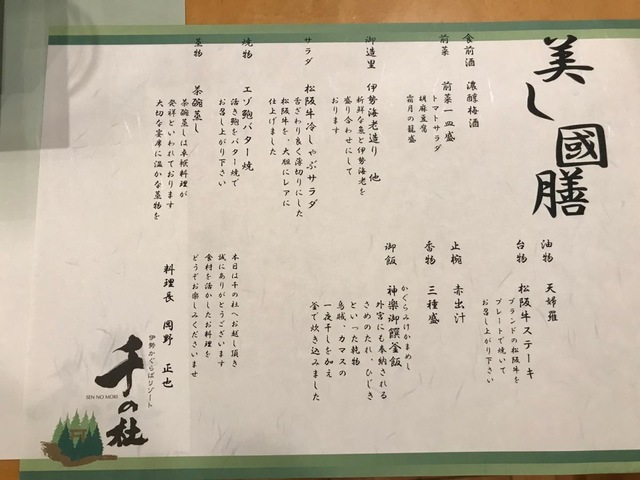 美し國膳
食前酒 濃醇梅酒
前菜 前菜一皿盛
トマトサラダ
胡麻豆腐
霜月の籠盛
御造里 伊勢海老造り 他
新鮮な魚と伊勢海老を
盛り合わせにして
おります
サラダ 松阪牛冷しゃぶサラダ
舌ざわり良く薄切りにした
松阪牛を、大胆にレアに
仕上げました
焼物 エゾ鮑バター焼
活き鮑をバター焼で
お召し上がり下さい
蒸物 茶碗蒸し
茶碗蒸しは卓袱料理が
発祥といわれております
大切な宴席に温かな蒸物を
油物 天婦羅
台物 松阪牛ステーキ
ブランドの松阪牛を
プレートで焼いて
お召し上がり下さい
止椀 赤出汁
香物 三種盛
御飯 神楽御饌釜飯
かぐらみけかまめし
外宮にも奉納される
さめのたれ、ひじき
といった乾物
烏賊、カマスの
一夜干しを加え
釜で炊き込みました
本日は千の杜へお越し頂き
誠にありがとうございます
食材を活かしたお料理を
どうぞお楽しみくださいませ
料理長 岡野 正也
伊勢かぐらばリゾート
千の杜
SEN NO MORI